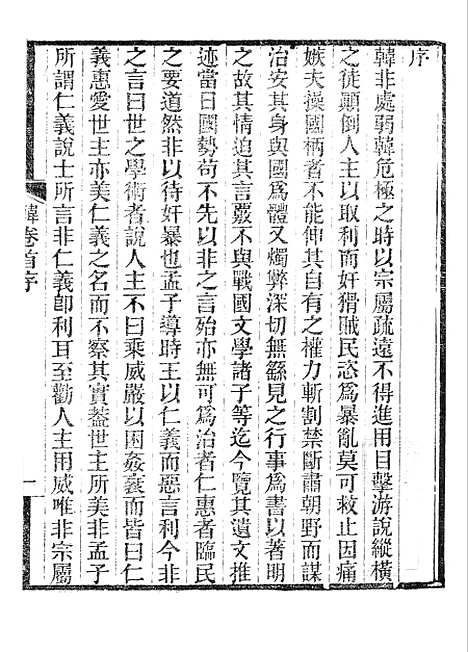 序
韓非處弱韓危極之時以宗屬疏遠不得進用目擊游說縱橫
之徒顛倒人主以取利而奸猾賊民恣爲暴亂莫可救止因痛
嫉夫操國柄者不能伸其自有之權力斬割禁斷肅朝野而謀
治安其身與國爲體又燭弊深切無繇見之行事爲書以著明
之故其情迫其言覈不與戰國文學諸子等迄今覽其遺文推
迹當日國勢苟不先以非之言殆亦無可爲治者仁惠者臨民
之要道然非以待奸暴也孟子導時王以仁義而惡言利今非
之言曰世之學術者說人主不曰乘威嚴以困姦衺而皆曰仁
義惠愛世主亦美仁義之名而不察其實葢世主所美非孟子
所謂仁義說士所言非仁義卽利耳至勸人主用威唯非宗屬
韓卷首序
一